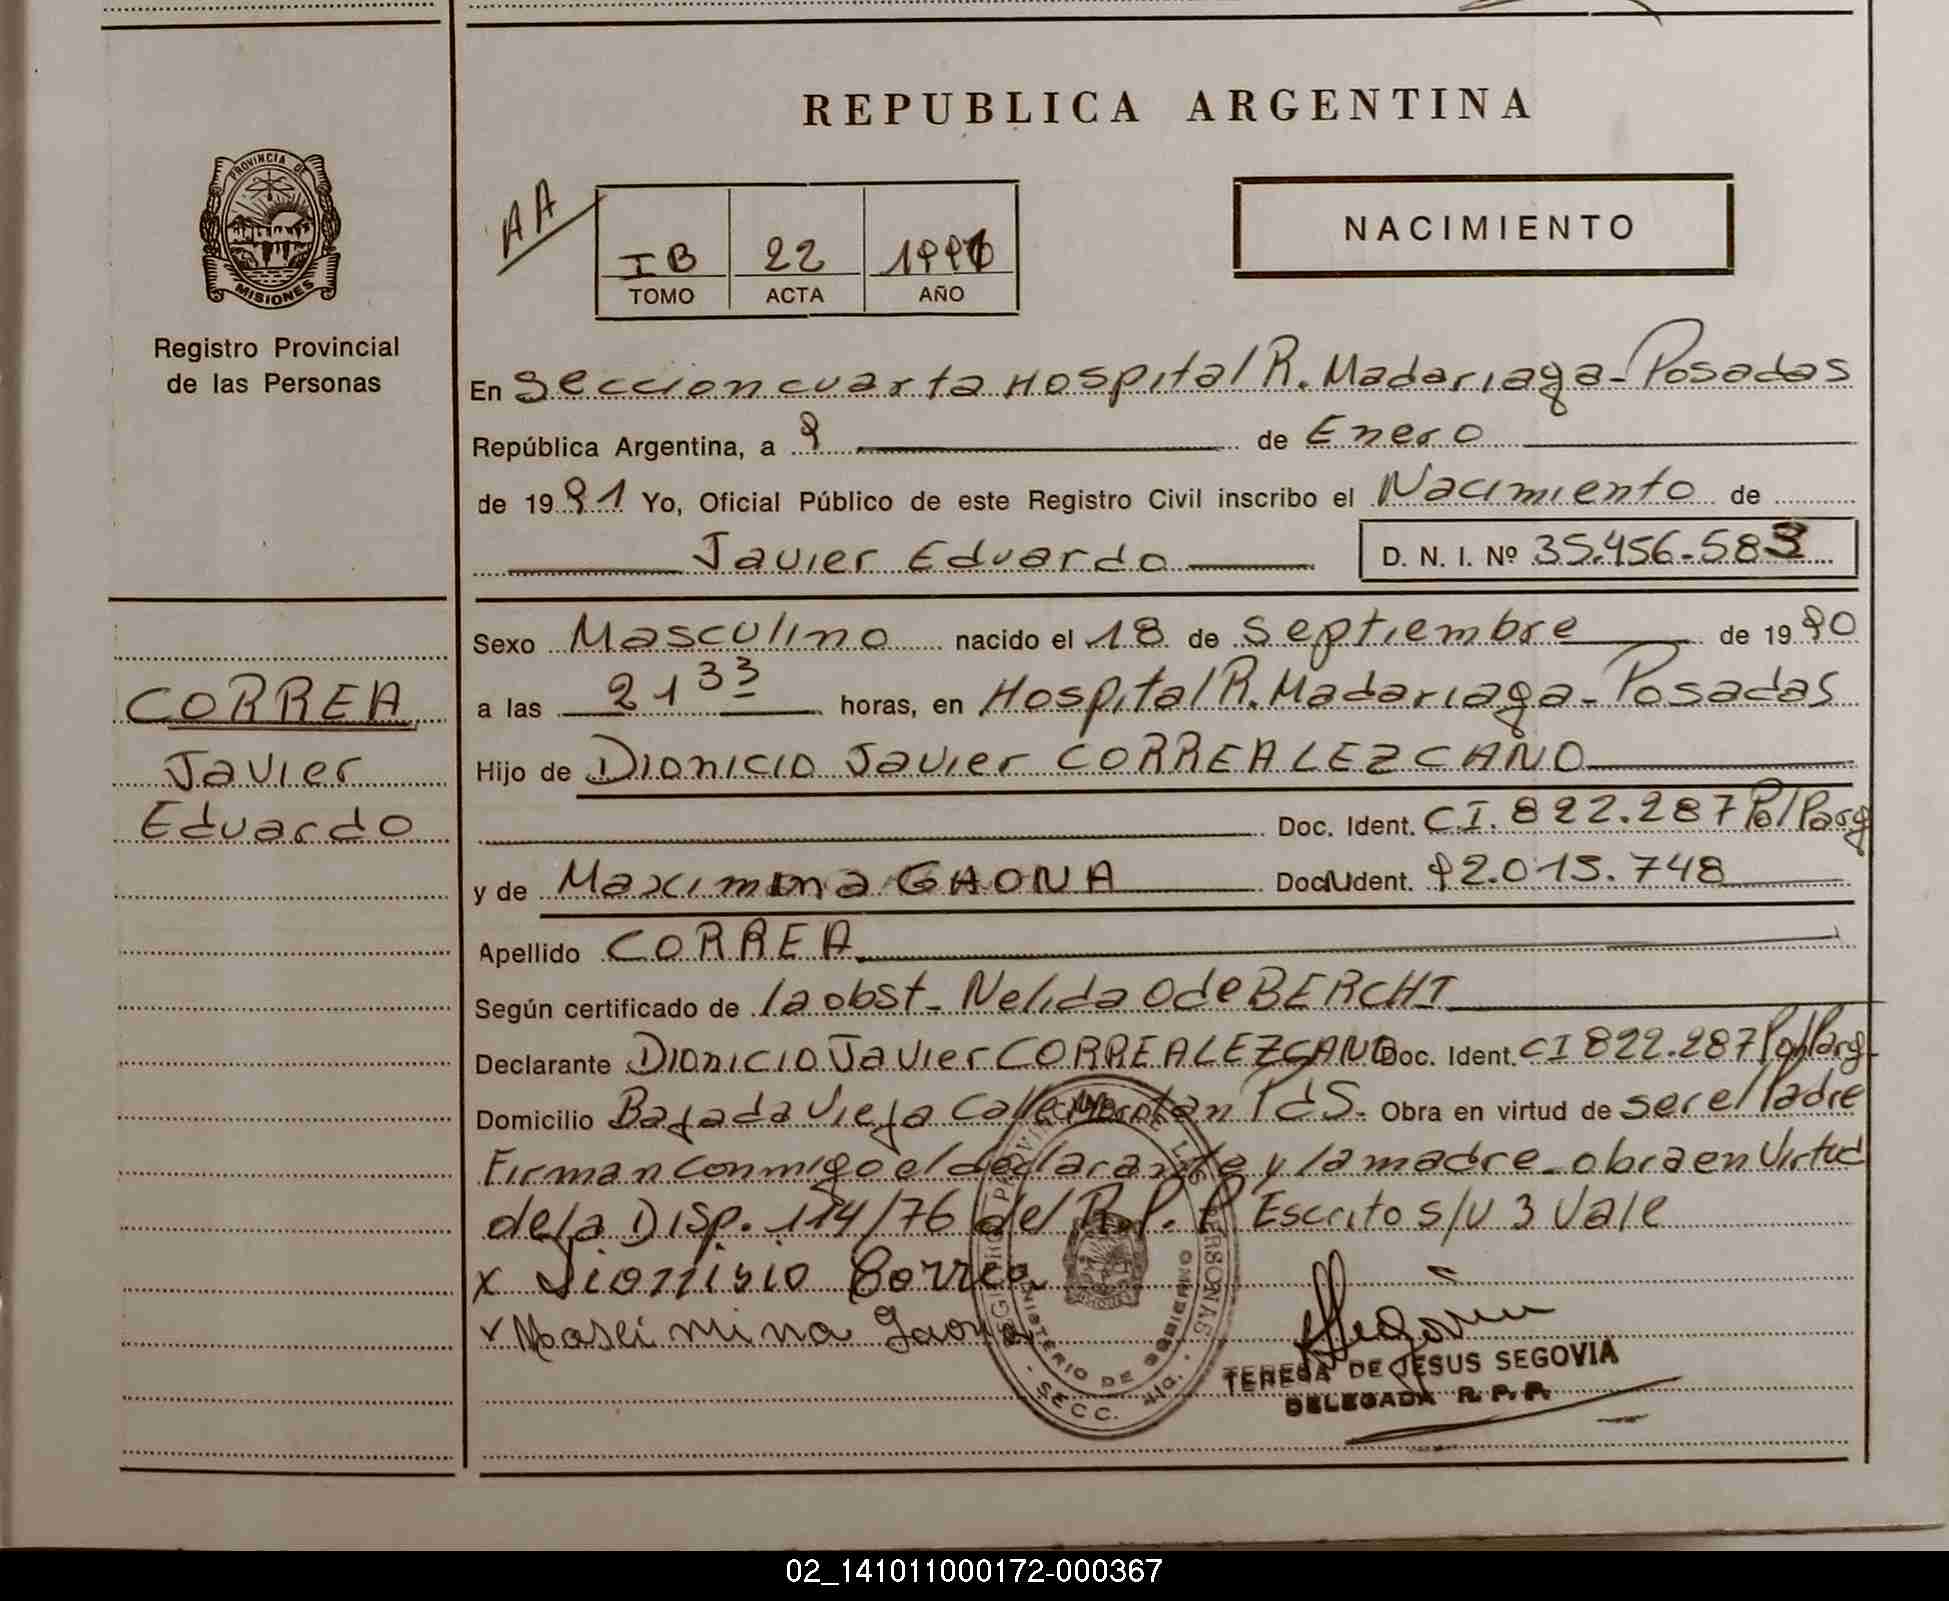 REPUBLICA ARGENTINA
PROVINCIA DE
MISIONES
Registro Provincial
de las Personas
AA
IB 22 1991
TOMO ACTA AÑO
NACIMIENTO
En Seccion cuarta Hospital R. Madariaga - Posadas
República Argentina, a 9 de Enero
de 1991 Yo, Oficial Público de este Registro Civil inscribo el Nacimiento de
Javier Eduardo D. N. I. Nº 35.456.583
CORREA
Javier
Eduardo
Sexo Masculino nacido el 18 de Septiembre de 1990
a las 21 33 horas, en Hospital R. Madariaga - Posadas
Hijo de Dionicio Javier CORREA LEZCANO
Doc. Ident. C.I. 822.287 Pol Parg
y de Maximina GAONA Doc. Ident. 92.015.748
Apellido CORREA
Según certificado de la obst - Nelida O de BERCHT
Declarante Dionicio Javier CORREA LEZCANO Doc. Ident. CI 822.287 Pol Parg
Domicilio Bajada Vieja Calle Pds. Obra en virtud de ser el Padre
Firman conmigo el declarante y la madre - obra en Virtud
de la Disp. 114/76 del R. P. P Escrito s/v 3 Vale
x Dionisio Correa
x Maseimina Gaona
REGISTRO PROVINCIAL DE LAS PERSONAS
MINISTERIO DE GOBIERNO
SECC. 4ta.
TERESA DE JESUS SEGOVIA
DELEGADA R. P. P.
02_141011000172-000367